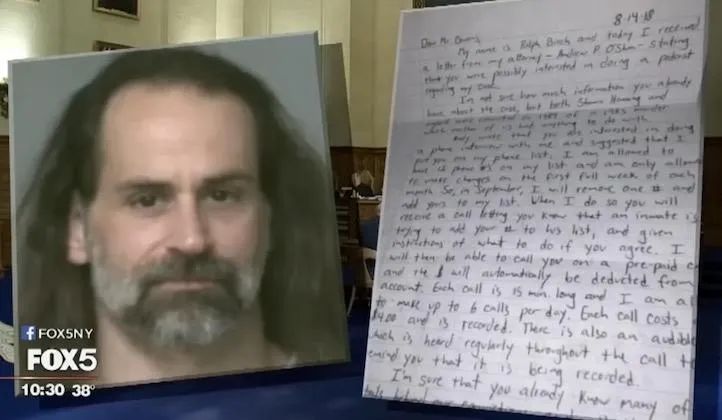 8-14-18
Dear Mr.
My name is Ralph Birch and today I received
a letter from my attorney - Andrew P. O'Shea - stating
that you were possibly interested in doing a podcast
regarding my case.
I'm not sure how much information you already
have about the case, but both Shawn Henning and
myself were convicted in 1989 of a 1985 murder
which neither of us had anything to do with.
that you are interested in doing
a phone interview with me and suggested that I
put you on my phone list. I am allowed to
have on my list and am only allowed
to make changes on the first full week of each
month. So, in September, I will remove one # and
add yours to my list. When I do so you will
receive a call letting you know that an inmate is
trying to add your # to his list, and given
instructions of what to do if you agree. I
will then be able to call you on a pre-paid
and the $ will automatically be deducted from
account. Each call is 15 min. long and I am
to make up to 6 calls per day. Each call costs
$4.00 and is recorded. There is also an audible
which is heard regularly throughout the call to
remind you that it is being recorded.
I'm sure that you already know many of
f FOX5NY
FOX5
10:30 38°